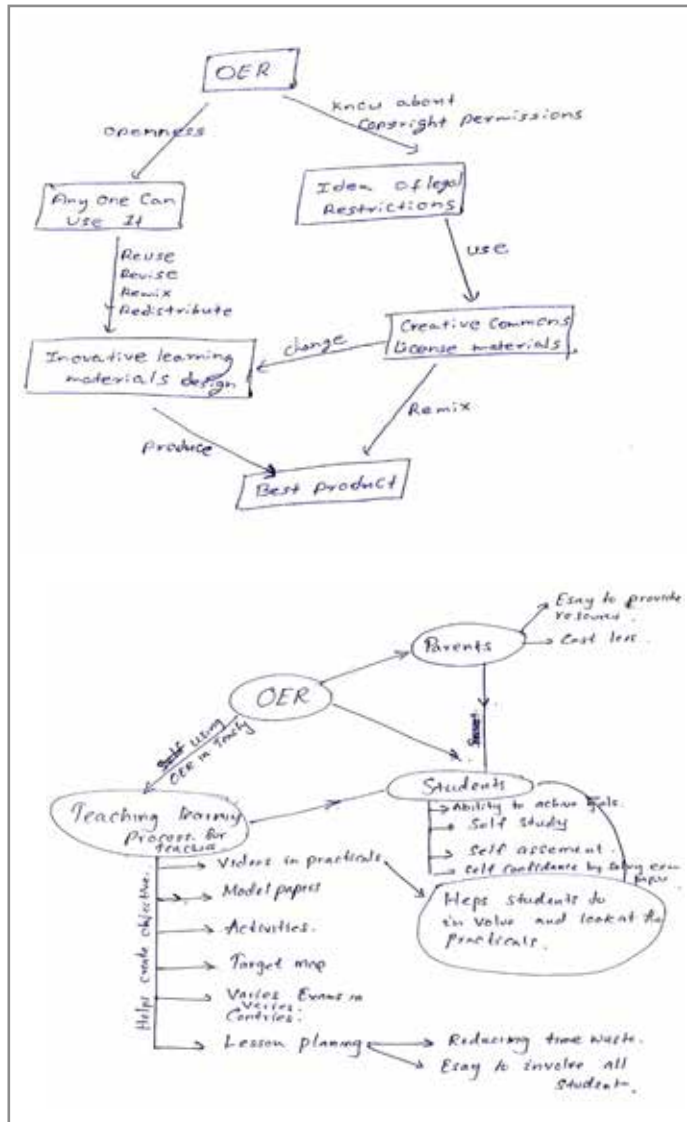 OER
Openness
Know about
Copyright permissions
Any One Can
Use It
Idea Of legal
Restrictions
Reuse
Revise
Remix
Redistribute
use
Inovative learning
materials design
change
Creative Commons
License materials.
Produce
Remix
Best product
Esay to provide
Parents
Cost less.
OER
using
OER in
Students
Teaching learning
Process for
Ability to active
Self study
Self assement.
Self confidance by
Helps create objective.
Videos in practicals
Model papers
Activities.
Target map
Varies Exams in
Varies
Contries.
Lesson planing
Heps students to
in volve and look at the
practicals.
Reducing time waste.
Esay to involve all
student